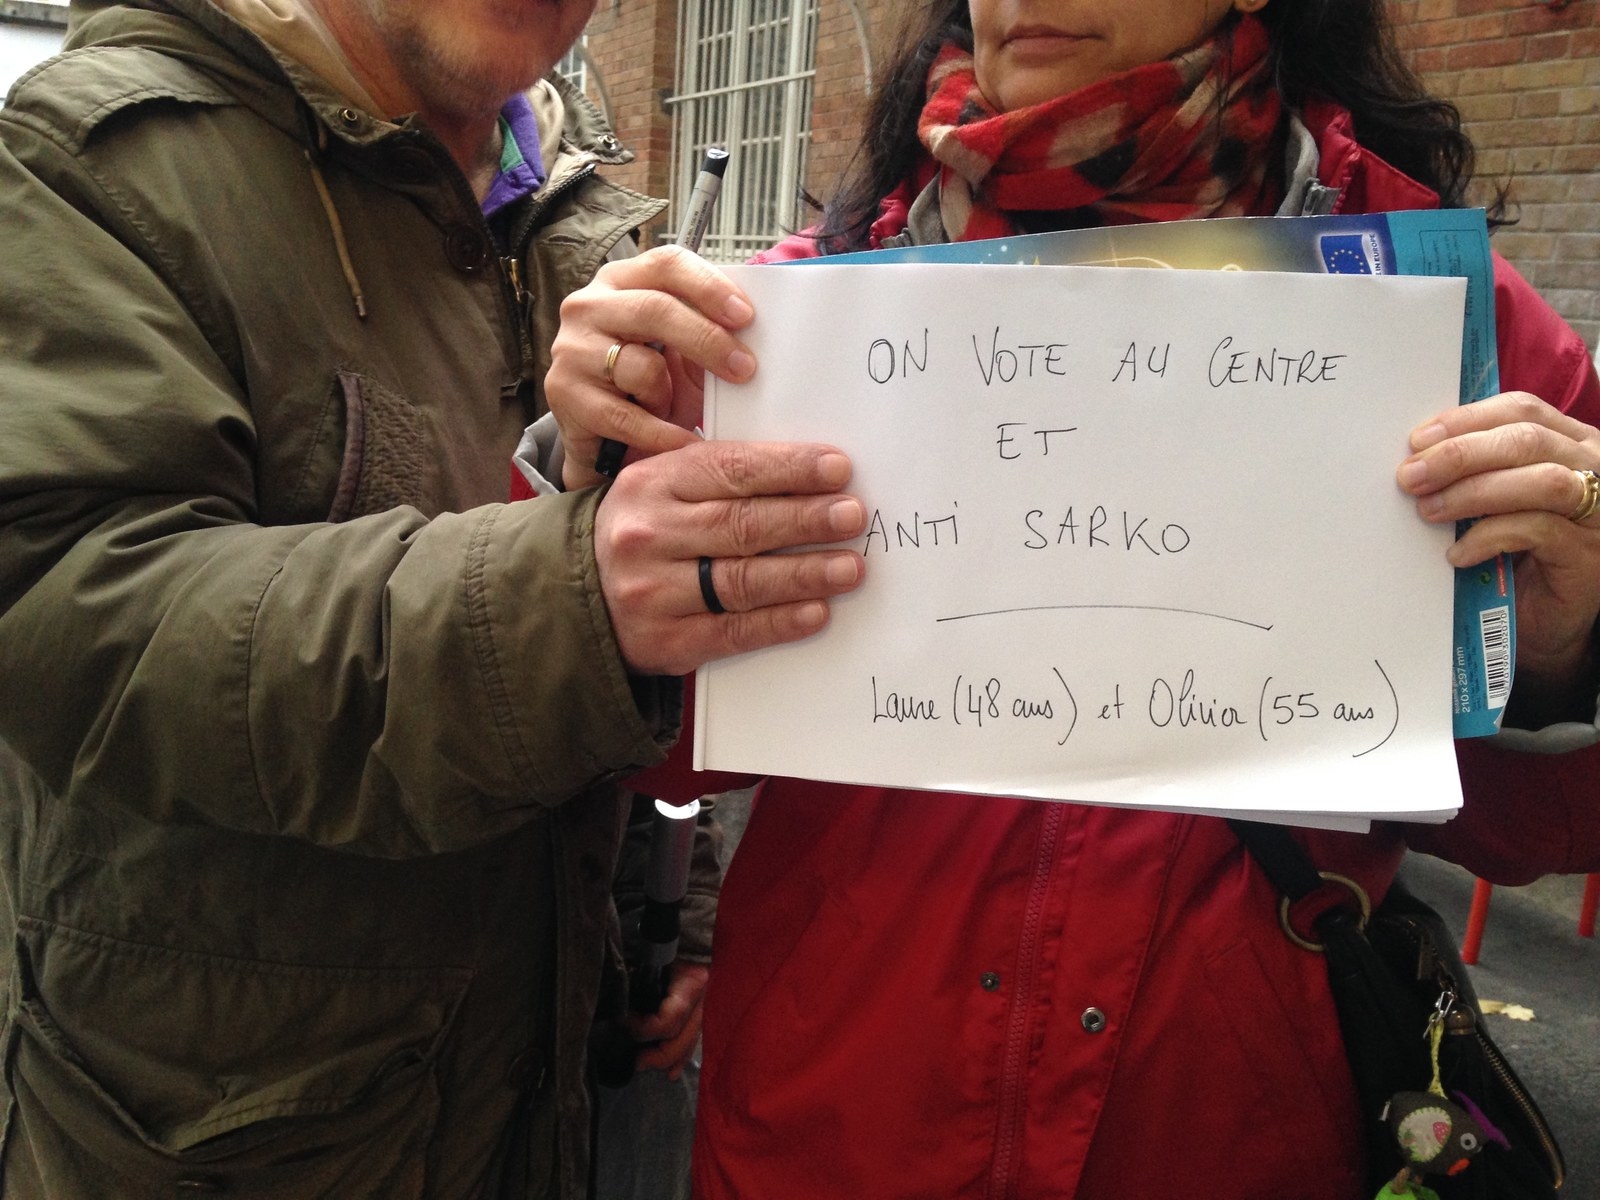 ON VOTE AU CENTRE
ET
ANTI SARKO
Laure (48 ans) et Olivier (55 ans)
IN EUROPE
210 x 297 mm